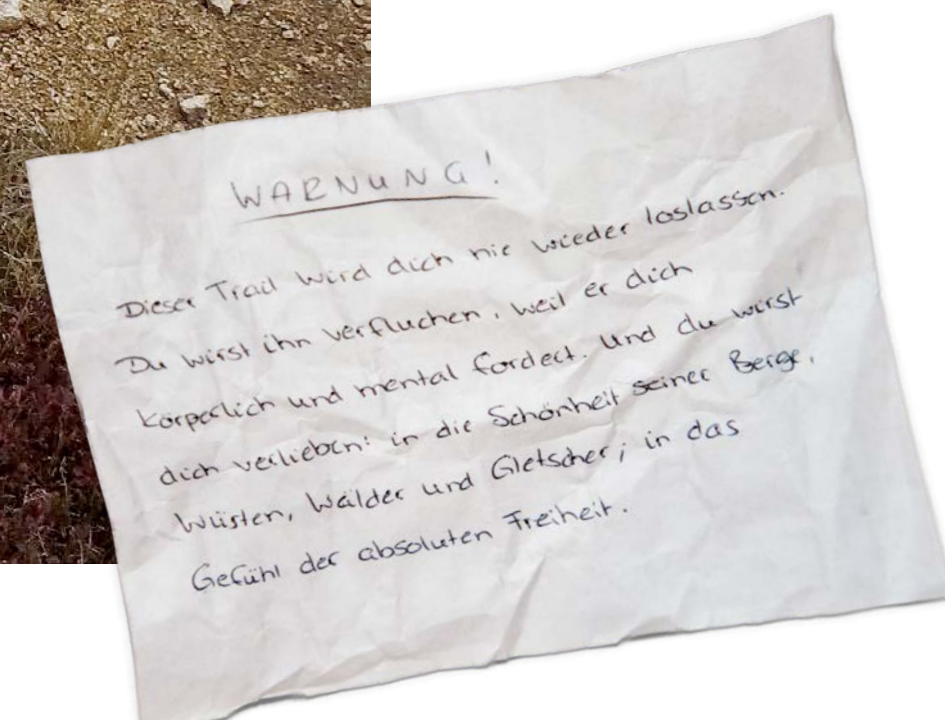 WARNUNG!
Dieser Trail wird dich nie wieder loslassen.
Du wirst ihn verfluchen, weil er dich
körperlich und mental fordert. Und du wirst
dich verlieben: in die Schönheit seiner Berge,
Wüsten, Wälder und Gletscher; in das
Gefühl der absoluten Freiheit.